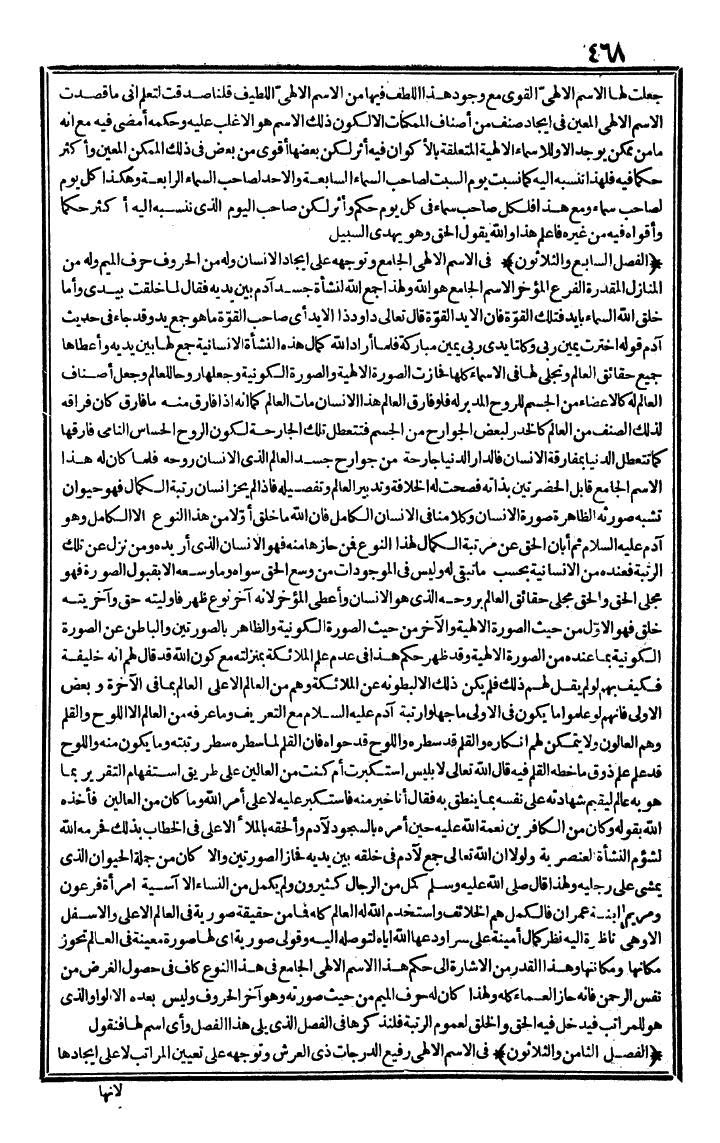 ٤٦٨
جعلت لها الاسم الالهىّ القوى مع وجود هذا اللطف فيها من الاسم الالهىّ اللطيف قلنا صدقت لتعلم انى ما قصدت
الاسم الالهى المعين فى ايجاد صنف من أصناف الممكنات الا لكون ذلك الاسم هو الاغلب عليه وحكمه أمضى فيه مع انه
ما من ممكن يوجد الا وللاسماء الالهية المتعلقة بالأكوان فيه أثر لكن بعضها أقوى من بعض فى ذلك الممكن المعين وأكثر
حكما فيه فلهذا ننسبه اليه كما نسبت يوم السبت لصاحب السماء السابعة والاحد لصاحب السماء الرابعة وهكذا كل يوم
لصاحب سماء ومع هذا فلكل صاحب سماء فى كل يوم حكم وأثر لكن صاحب اليوم الذى ننسبه اليه أكثر حكما
وأقواه فيه من غيره فاعلم هذا والله يقول الحق وهو يهدى السبيل
﴿الفصل السابع والثلاثون﴾ فى الاسم الالهى الجامع وتوجهه على ايجاد الانسان وله من الحروف حرف الميم وله من
المنازل المقدرة الفرع المؤخر الاسم الجامع هو الله ولهذا جمع الله لنشأة جسد آدم بين يديه فقال لما خلقت بيدى وأما
خلق الله السماء بايد فتلك القوّة فان الايد القوّة قال تعالى داود ذا الايد أى صاحب القوّة ما هو جمع يد وقد جاء فى حديث
آدم قوله اخترت يمين ربى وكلتا يدى ربى يمين مباركة فلما أراد الله كمال هذه النشأة الانسانية جمع لها بين يديه وأعطاها
جميع حقائق العالم وتجلى لها فى الاسماء كلها فحازت الصورة الالهية والصورة الكونية وجعلها روحا للعالم وجعل أصناف
العالم له كالاعضاء من الجسم للروح المدبر له فلو فارق العالم هذا الانسان مات العالم كما انه اذا فارق منه ما فارق كان فراقه
لذلك الصنف من العالم كالخدر لبعض الجوارح من الجسم فتتعطل تلك الجارحة لكون الروح الحساس النامى فارقها
كما تتعطل الدنيا بمفارقة الانسان فالدار الدنيا جارحة من جوارح جسد العالم الذى الانسان روحه فلما كان له هذا
الاسم الجامع قابل الحضرتين بذاته فصحت له الخلافة وتدبير العالم وتفصيله فاذا لم يحز انسان رتبة الكمال فهو حيوان
تشبه صورته الظاهرة صورة الانسان وكلامنا فى الانسان الكامل فان الله ما خلق أوّلا من هذا النوع الا الكامل وهو
آدم عليه السلام ثم أبان الحق عن مرتبة الكمال لهذا النوع فمن حازها منه فهو الانسان الذى أريده ومن نزل عن تلك
الرتبة فعنده من الانسانية بحسب ما تبقى له وليس فى الموجودات من وسع الحق سواه وما وسعه الا بقبول الصورة فهو
مجلى الحق والحق مجلى حقائق العالم بروحه الذى هو الانسان وأعطى المؤخر لانه آخر نوع ظهر فاوليته حق وآخريته
خلق فهو الاوّل من حيث الصورة الالهية والآخر من حيث الصورة الكونية والظاهر بالصورتين والباطن عن الصورة
الكونية بما عنده من الصورة الالهية وقد ظهر حكم هذا فى عدم علم الملائكة بمنزلته مع كون الله قد قال لهم انه خليفة
فكيف بهم لو لم يقل لهم ذلك فلم يكن ذلك الا لبطونه عن الملائكة وهم من العالم الاعلى العالم بما فى الآخرة وبعض
الاولى فانهم لو علموا ما يكون فى الاولى ما جهلوا رتبة آدم عليه السلام مع التعريف وما عرفه من العالم الا اللوح والقلم
وهم العالون ولا يتمكن لهم انكاره والقلم قد سطره واللوح قد حواه فان القلم لما سطره سطر رتبته وما يكون منه واللوح
قد علم علم ذوق ما خطه القلم فيه قال الله تعالى لابليس استكبرت أم كنت من العالين على طريق استفهام التقرير بما
هو به عالم ليقيم شهادته على نفسه بما ينطق به فقال أنا خير منه فاستكبر عليه لا على أمر الله وما كان من العالين فأخذه
الله بقوله وكان من الكافرين نعمة الله عليه حين أمره بالسجود لآدم وألحقه بالملأ الاعلى فى الخطاب بذلك فحرمه الله
لشؤم النشأة العنصرية ولولا ان الله تعالى جمع لآدم فى خلقه بين يديه فحاز الصورتين والا كان من جملة الحيوان الذى
يمشى على رجليه ولهذا قال صلى الله عليه وسلم كمل من الرجال كثيرون ولم يكمل من النساء الا آسية امرأة فرعون
ومريم ابنة عمران فالكمل هم الخلائف واستخدم الله له العالم كله فما من حقيقة صورية فى العالم الاعلى والاسفل
الا وهى ناظرة اليه نظر كمال أمينة على سر أودعها الله اياه لتوصله اليه وقولى صورية اى لها صورة معينة فى العالم تحوز
مكانها ومكانتها وهذا القدر من الاشارة الى حكم هذا الاسم الالهى الجامع فى هذا النوع كاف فى حصول الغرض من
نفس الرحمن فانه حاز العماء كله ولهذا كان له حرف الميم من حيث صورته وهو آخر الحروف وليس بعده الا الواو الذى
هو للمراتب فيدخل فيه الحق والخلق لعموم الرتبة فلنذكرها فى الفصل الذى يلى هذا الفصل وأى اسم لها فنقول
﴿الفصل الثامن والثلاثون﴾ فى الاسم الالهى رفيع الدرجات ذى العرش وتوجهه على تعيين المراتب لا على ايجادها
لانها